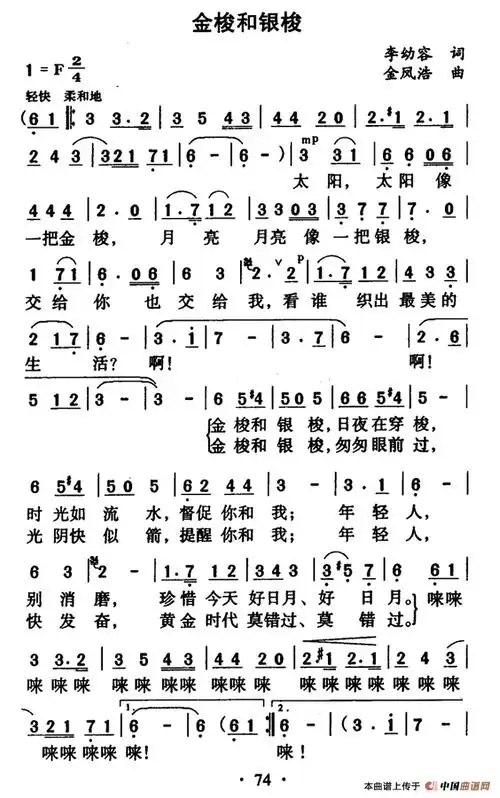 金梭和银梭
1=F 2/4
李幼容 词
金凤浩 曲
轻快 柔和地
(6 1 |: 3 3·2 | 3 5 4 3 | 4 4 2 0 | 2·#1 | 2·1 |
2 4 3 | 3 2 1 7 1 | 6 - | 6 -) | mp 3 3 1 | 6 6 0 6 |
太阳, 太阳像
4 4 4 | 2·0 | 1·7 1 2 | 3 3 0 3 | 3 7 7 | 7·0 |
一把金 梭, 月 亮 月亮 像 一把 银 梭,
1 7 1 | 6·0 6 | 6 3 | 2·2 p | 1·7 1 2 | 4 3 3 |
交给 你 也 交给 我,看 谁 织出 最美的
2 1 7 | 6 - | 3·i | 7 - | 3·7 | 6 - | 2·6 |
生 活? 啊! 啊!
5 1 2 | 3 - | 3 - | 6 5 #4 | 5 0 5 | 6 6 5 #4 | 5 - |
金 梭和 银 梭,日夜在穿 梭,
金 梭和 银 梭,匆匆眼前 过,
6 5 #4 | 5 0 5 | 6 2 4 4 | 3 - | 3·1 | 6 - |
时 光如 流 水,督促 你和 我; 年 轻 人,
光 阴快 似 箭,提醒 你和 我; 年 轻 人,
6 3 | 2 - | 1·7 1 2 | 3 4 3 | 3 #5 7 | 6 6 1 |
别 消 磨, 珍惜 今天 好日月、好 日 月。 唻唻
快 发 奋, 黄金 时代 莫错过、莫 错 过。
3 3·2 | 3 5 4 3 | 4 4 2 0 | 2 #1 2·1 | 2 4 3 |
唻 唻 唻 唻唻 唻唻 唻唻 唻 唻唻 唻唻 唻唻 唻
3 2 1 7 1 | 1. 6 - | 6 (6 1 :| 2. 6 - | (3·i | 7 - | 6 -) ‖
唻唻唻 唻唻! 唻!
· 74 ·
本曲谱上传于 中国曲谱网